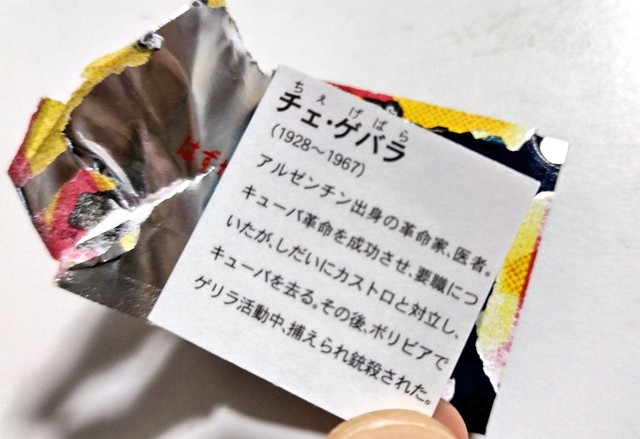 ちぇ げばら
チェ・ゲバラ
(1928〜1967)
アルゼンチン出身の革命家、医者。
キューバ革命を成功させ、要職につ
いたが、しだいにカストロと対立し、
キューバを去る。その後、ボリビアで
ゲリラ活動中、捕えられ銃殺された。
はず